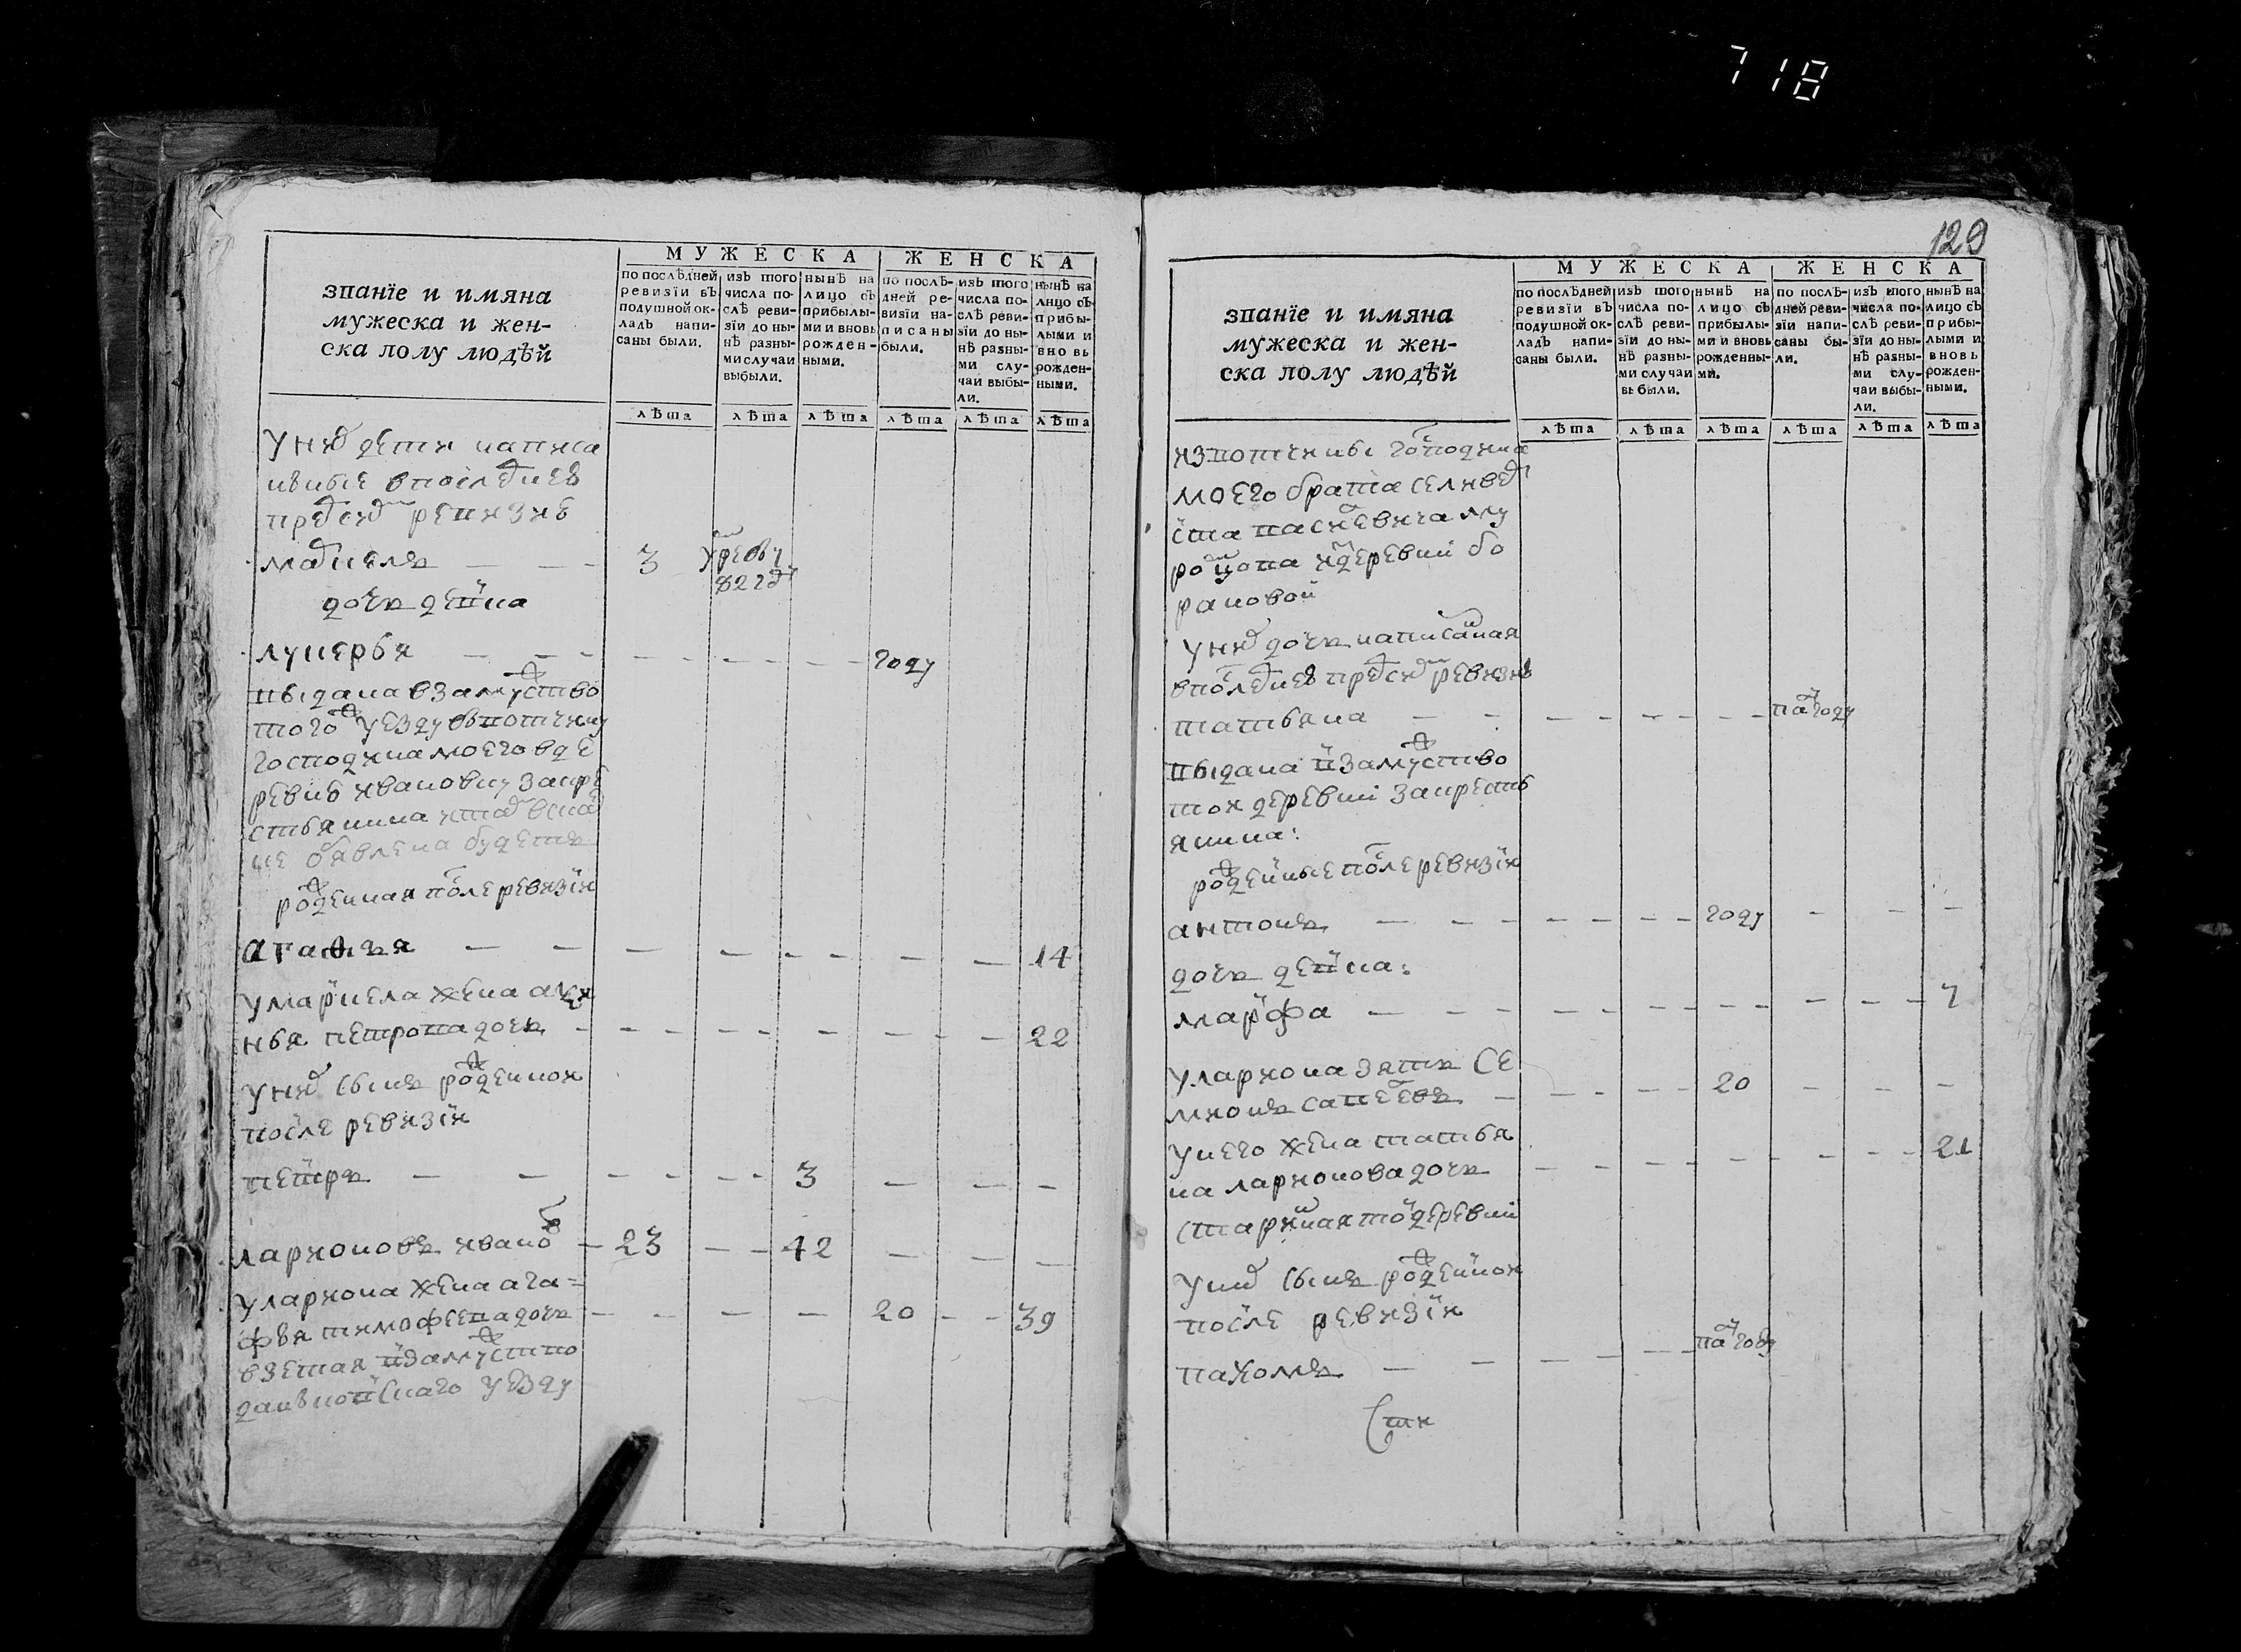 718
званїе и имяна
мужеска и жен-
ска полу людѣй
МУЖЕСКА
ЖЕНСКА
по послѣдней
ревизїи въ
подушной ок-
ладъ напи-
саны были.
изъ того
числа по-
слѣ реви-
зїи до ны-
нѣ разны-
ми случаи
выбыли.
нынѣ на
лицо съ
прибылы-
ми и вновь
рожден-
ными.
по послѣ-
дней ре-
визїи на-
писаны
были.
изъ того
числа по-
слѣ реви-
зїи до ны-
нѣ разны-
ми слу-
чаи выбы-
ли.
нынѣ на
лицо съ
прибы-
лыми и
вновь
рожден-
ными.
лѣта лѣта лѣта лѣта лѣта лѣта
у них дети написа
нныіе в последнеи
пред сим ревизие
3
дочь девка
лукерья — — — году
выдана в замуство
того ж уезду в вотчину
господина моего в де
ревню ивановку за кре
стьянина
не обявлена будетъ
рожденная после ревизїи
агафья — 14
у жена аксі
нья петрова дочь — 22
у них сынъ рожденнои
после ревизїи
петръ — 3
ларионовъ иванов — 23 — 42
у лариона жена ага=
фья тимофеева дочь — 20 — 39
взетая в замуство
данковскаго уезду
129
званїе и имяна
мужеска и жен-
ска полу людѣй
МУЖЕСКА
ЖЕНСКА
по послѣдней
ревизїи въ
подушной ок-
ладъ напи-
саны были.
изъ того
числа по-
слѣ реви-
зїи до ны-
нѣ разны-
ми случаи
выбыли.
нынѣ на
лицо съ
прибылы-
ми и вновь
рожденны-
ми.
по послѣ-
дней реви-
зїи напи-
саны бы-
ли.
изъ того
числа по-
слѣ реви-
зїи до ны-
нѣ разны-
ми слу-
чаи выбы-
ли.
нынѣ на
лицо съ
прибы-
лыми и
вновь
рожден-
ными.
лѣта лѣта лѣта лѣта лѣта лѣта
из вотчины господина
моего брата
му
ромцова из деревни бо
рановой
у них дочь написаная
в последнеи пред сим ревизиі
татьяна — пол году
выдана в замуство
тои деревни за кресть
янина:
рожденные после ревизїи
антонъ — году
дочь девка:
марфа — 7
у лариона зять се
мионъ савеевъ — 20
у него жена татья
на ларионова дочь — 21
старинная тои деревни
у них сынъ рожденнои
после ревизїи
пахомъ — пол году